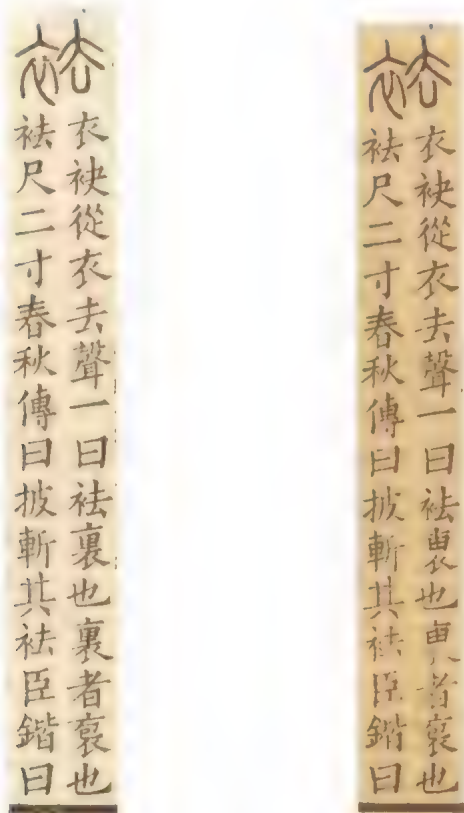 袪
衣袂從衣去聲一曰袪也者裒也
袪尺二寸春秋傳曰披斬其袪臣鍇曰
袪
衣袂從衣去聲一曰袪裏也裏者裒也
袪尺二寸春秋傳曰披斬其袪臣鍇曰